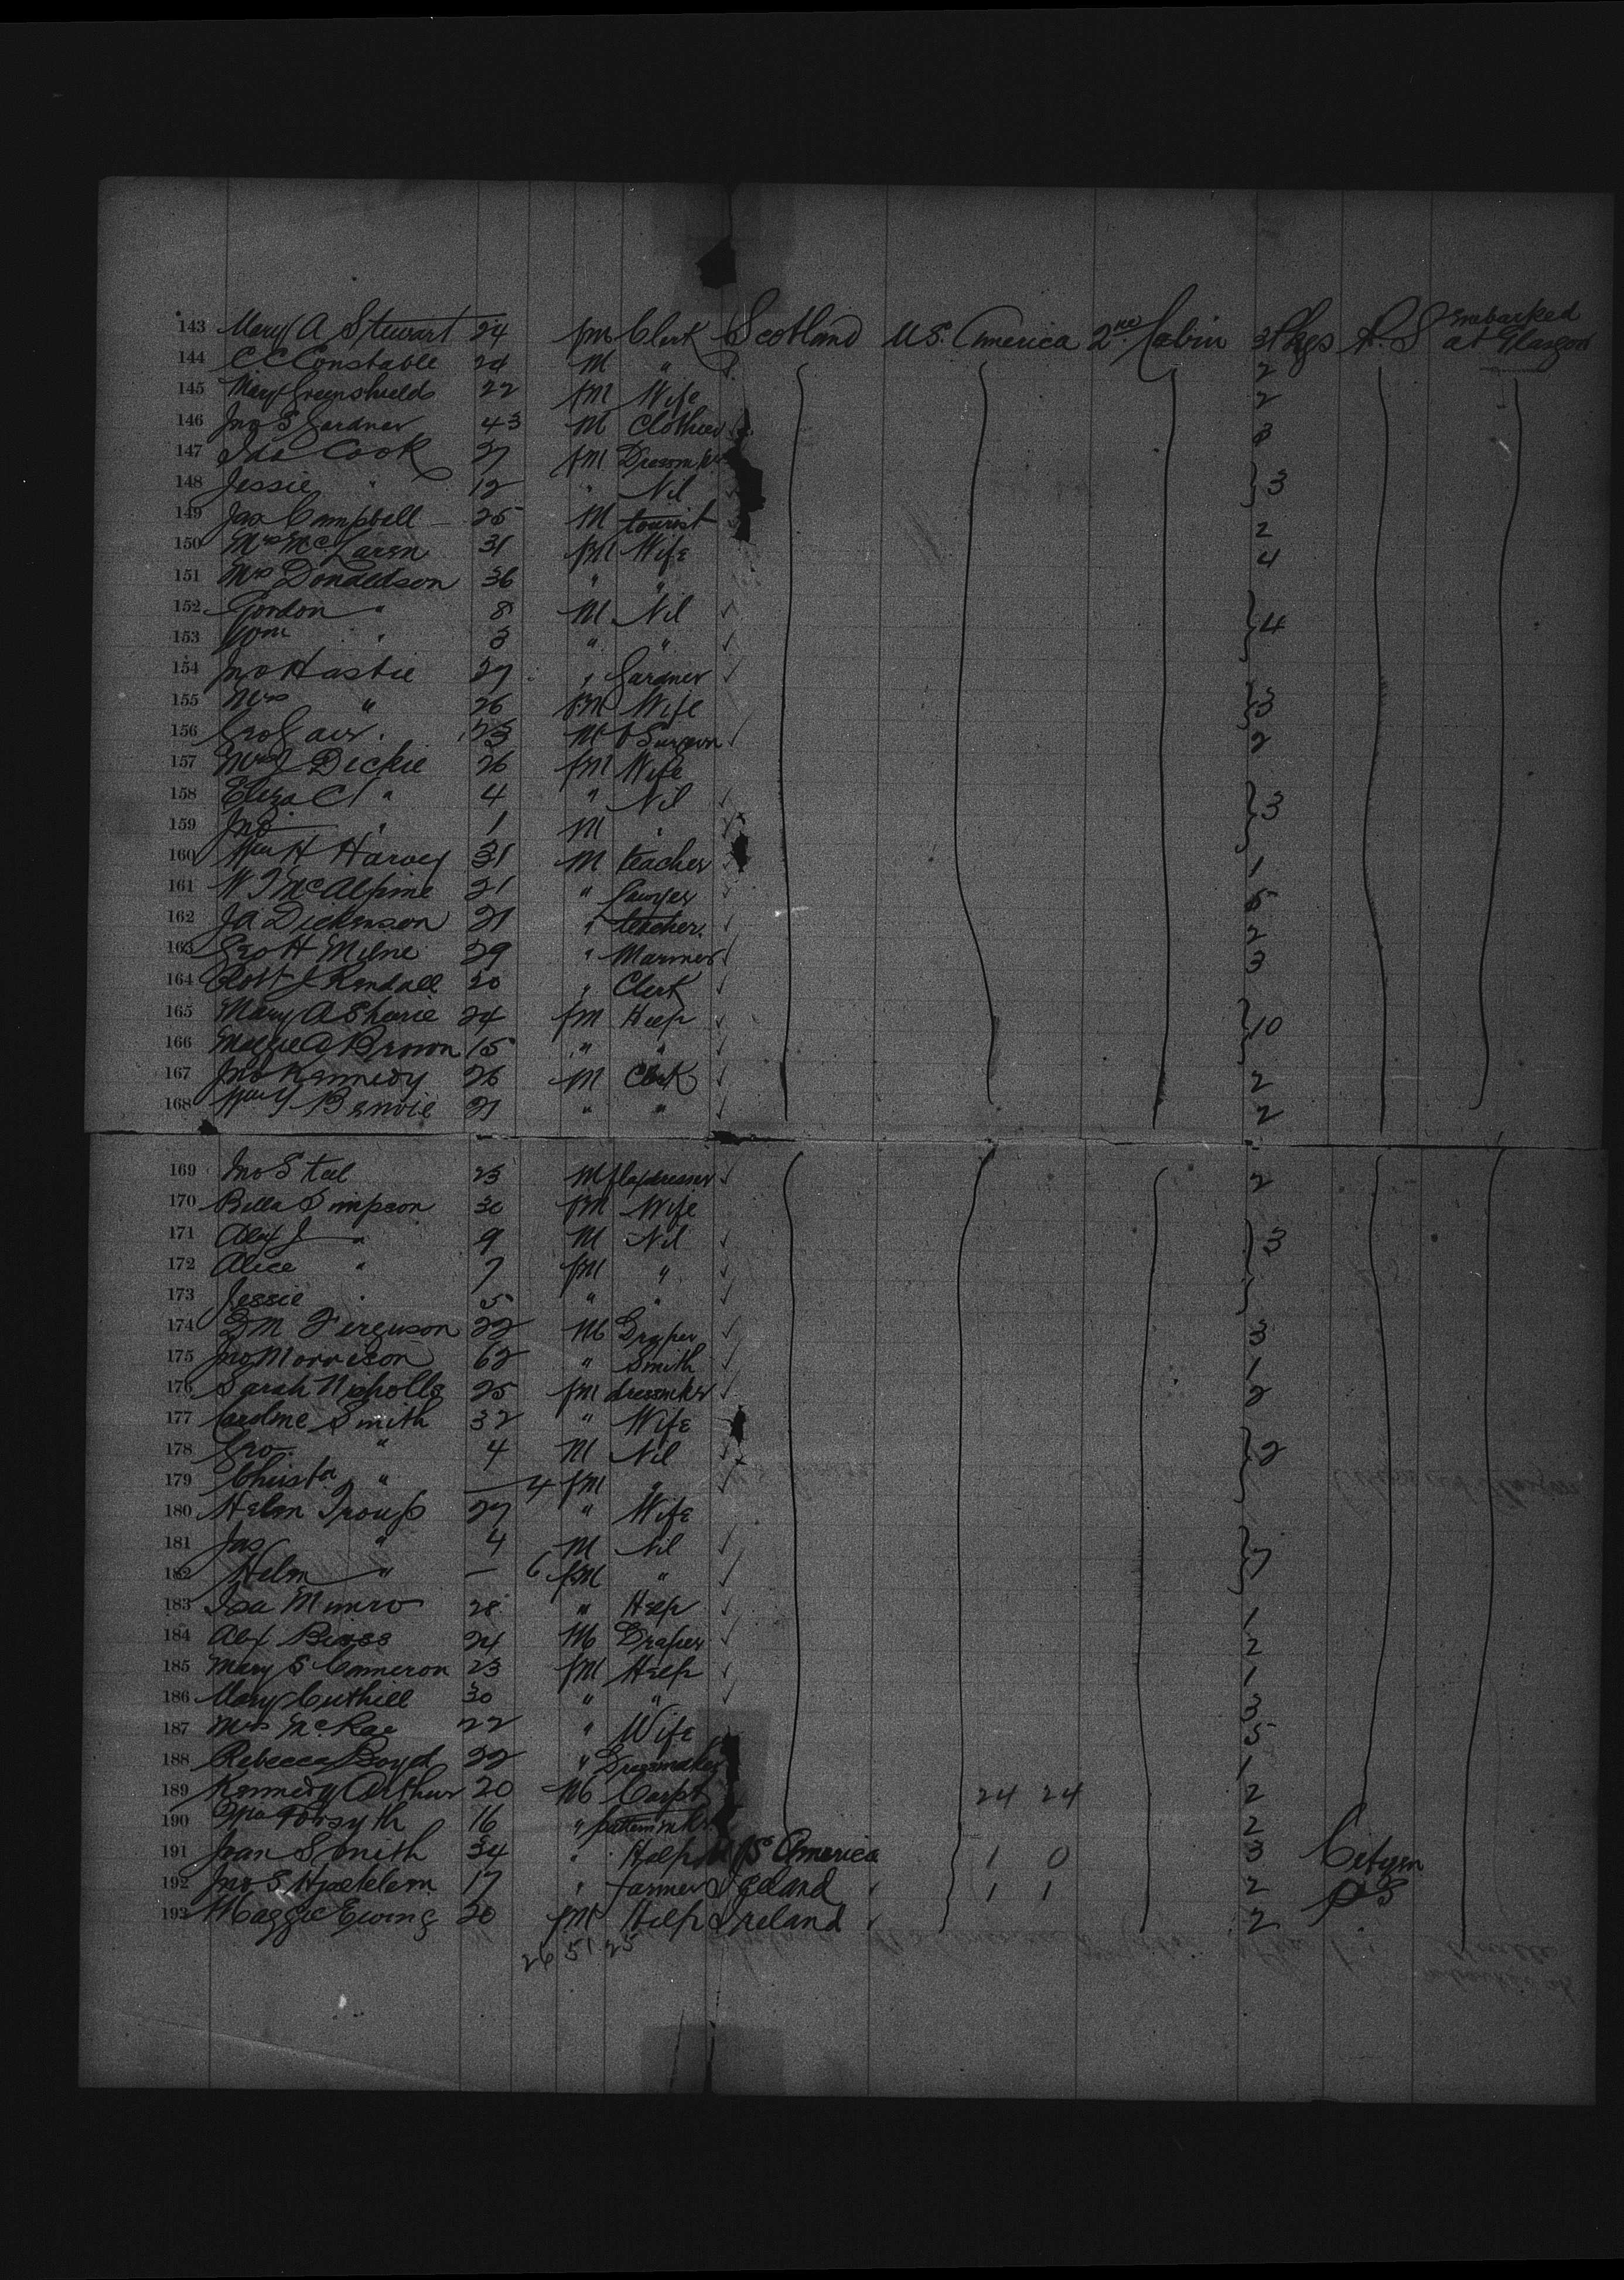 143 Mary A Stewart 24 fm Clerk Scotland U.S. America 2nd Cabin 3 Pkgs P.S embarked at Glasgow
144 C C Constable 24 M " 2
145 Mary Greenshields 22 fm Wife 2
146 Jno S Gardner 43 M Clothier 3
147 Ida Cook 27 fm Dressmkr
148 Jessie " 12 " Nil } 3
149 Jas Campbell 25 M tourist 2
150 Mrs McLaren 31 fm Wife 4
151 Mrs Donaldson 36 " "
152 Gordon " 8 M Nil } 4
153 Wm " 3 " "
154 Jno Hastie 27 " Gardner
155 Mrs " 26 fm Wife } 3
156 Geo Gair 23 M Surgeon 2
157 Mrs J Dickie 26 fm Wife
158 Eliza C " 4 " Nil } 3
159 Jno " 1 M "
160 Wm H Harvey 31 M teacher 1
161 W J McAlpine 21 " Lawyer 5
162 Ja Dickinson 21 " teacher 2
163 Geo H Milne 29 " Mariner 3
164 Robt J Kendall 20 " Clerk
165 Mary A Sharie 24 fm Help } 10
166 Maggie A Brown 15 " "
167 Jno Kennedy 26 M Clerk 2
168 Wm Y Benvie 21 " " 2
169 Jno Steel 23 M flaxdresser 2
170 Bella Simpson 30 fm Wife
171 Alex J " 9 M Nil } 3
172 Alice " 7 fm "
173 Jessie " 5 " "
174 G M Ferguson 22 M Draper 3
175 Jno Morrison 62 " Smith 1
176 Sarah Nicholls 25 fm dressmkr 2
177 Caroline Smith 32 " Wife
178 Geo " 4 M Nil } 2
179 Christa " — 4 fm "
180 Helen Troup 27 " Wife
181 Jas " 4 M Nil } 7
182 Helen " — 6 fm "
183 Isa Munro 28 " Help 1
184 Alex Bisss 24 M Draper 2
185 Mary S Cameron 23 fm Help 1
186 Mary Cuthill 30 " " 3
187 Mrs McRae 22 " Wife 5
188 Rebecca Boyd 22 " Dressmaker 1
189 Kennedy Arthur 20 M Carpt 24 24 2
190 Forsyth 16 " patternmkr 2
191 Joan Smith 34 " Help U S America 1 0 3 Citizen
192 Jno S 17 " farmer 1 1 2 P S
193 Maggie Ewing 20 fm Help Ireland 2
26 51 25